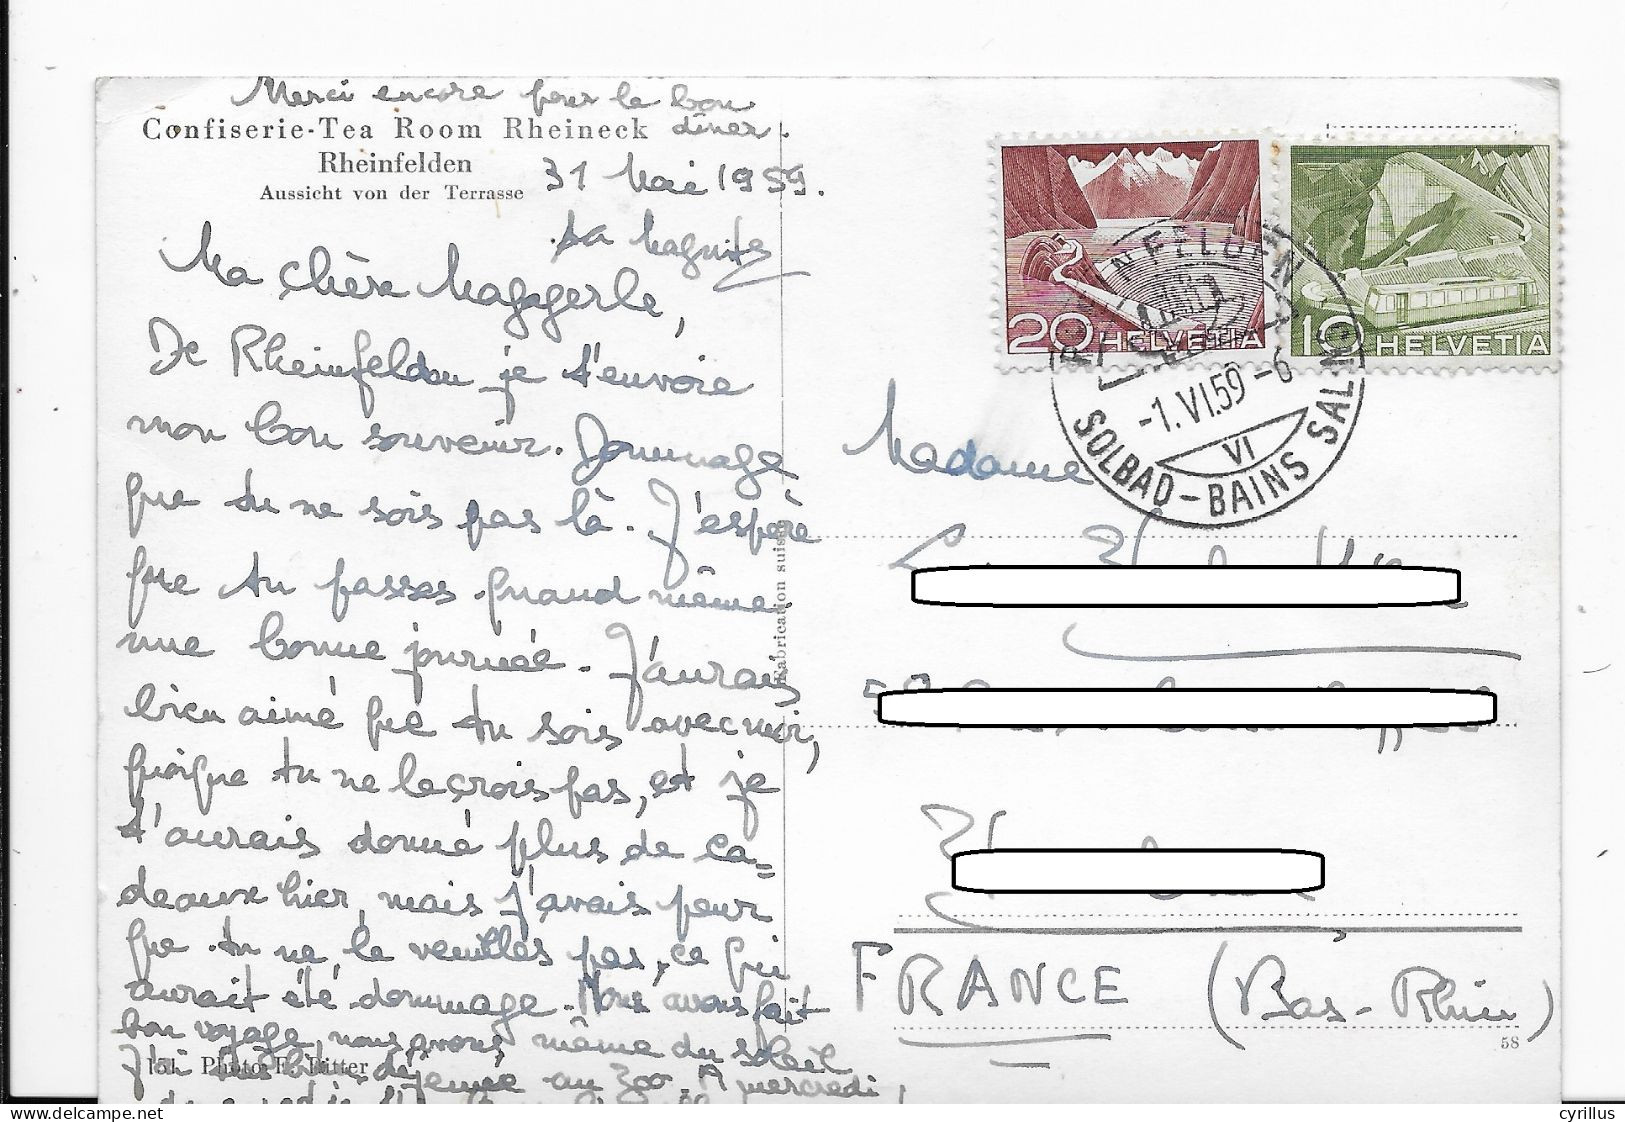 Merci encore pour le bon
dîner.
Confiserie-Tea Room Rheineck
Rheinfelden
Aussicht von der Terrasse
31 Mai 1959.
ta
Ma chère
De Rheinfelden je t'envoie
mon bon souvenir. Dommage
que tu ne sois pas là. J'espère
que tu passes quand même
une bonne journée. J'aurais
bien aimé que tu sois avec moi,
quoique tu ne le crois pas, et je
t'aurais donné plus de ca=
deaux hier, mais j'avais peur
que tu ne le veuilles pas, ce qui
aurait été dommage. Nous avons fait
bon voyage, nous avons même du soleil
déjeuné au zoo. A mercredi,
151 Photo F. Ritter
Fabrication suisse
20 HELVETIA
10 HELVETIA
RHEINFELDEN
-1.VI.59-6
VI
SOLBAD-BAINS SALINS
Madame
FRANCE (Bas-Rhin)
58
delcampe.net
cyrillus